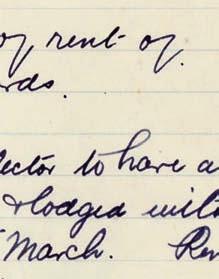 of rent of
rds.
ector to have a
& lodged with
March. Ren